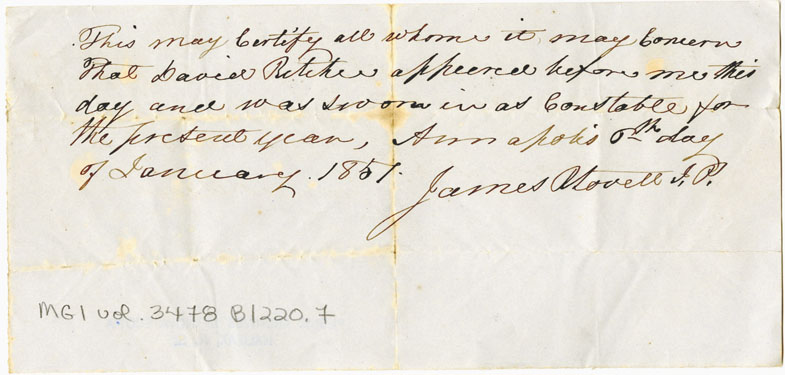 This may Certify all whome it may Concern
That David Ritchie appeered before me this
day and was sworn in as Constable for
the present year, Annapolis 6th day
of January. 1851.
James Stovell J.P.
MG1 vol. 3478 B1220.7